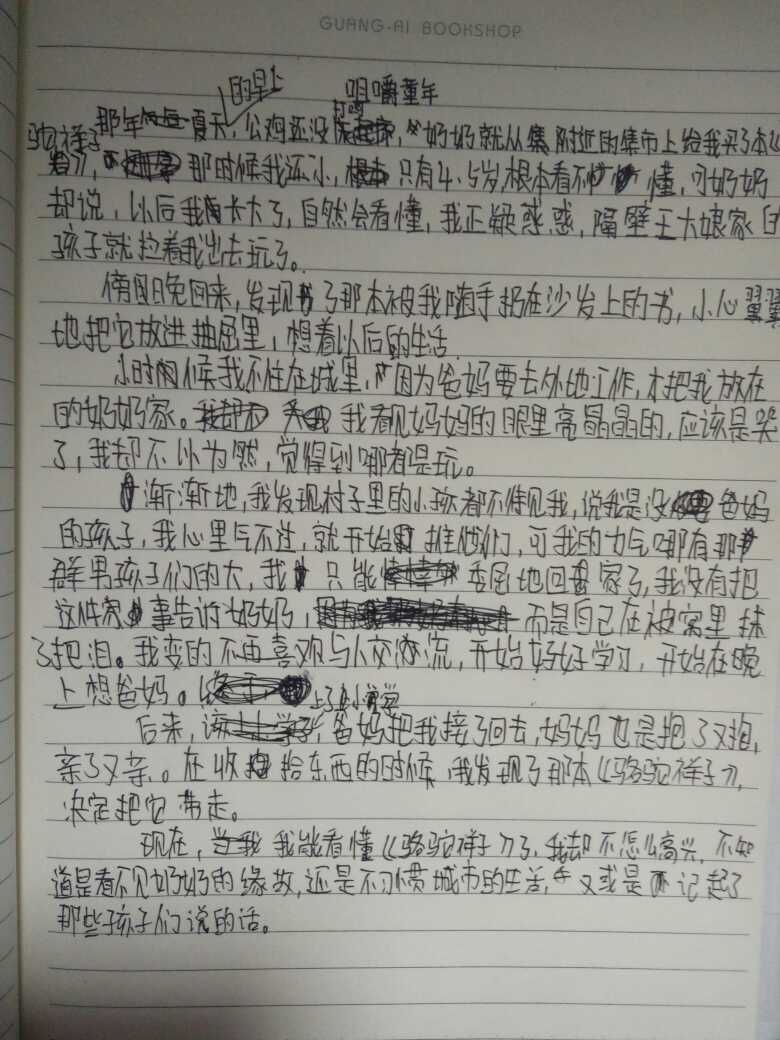 GUANG-AI BOOKSHOP
咀嚼童年
的早上
打鸣
那年夏天,公鸡还没,奶奶就从集附近的集市上给我买了本《
驼祥子
》,那时候我还小,只有4、5岁,根本看不懂,可奶奶
却说,以后我长大了,自然会看懂,我正疑惑惑,隔壁王大娘家的
孩子就拉着我出去玩了。
傍晚回来,发现了那本被我随手扔在沙发上的书,小心翼翼
地把它放进抽屉里,想着以后的生活
小时候我不住在城里,因为爸妈要去外地工作,才把我放在
的奶奶家。我看见妈妈的眼里亮晶晶的,应该是哭
了,我却不以为然,觉得到哪都是玩。
渐渐地,我发现村子里的小孩都不待见我,说我是没爸妈
的孩子,我心里气不过,就开始推他们,可我的力气哪有那
群男孩子们的大,我只能委屈地回家了,我没有把
这件事告诉奶奶,而是自己在被窝里抹
了把泪。我变的不再喜欢与人交流,开始好好学习,开始在晚
上想爸妈。
上了小学
后来,爸妈把我接了回去,妈妈也是抱了又抱,
亲了又亲。在收拾东西的时候,我发现了那本《骆驼祥子》,
决定把它带走。
现在,我能看懂《骆驼祥子》了,我却不怎么高兴,不知
道是看不见奶奶的缘故,还是不习惯城市的生活,又或是记起了
那些孩子们说的话。